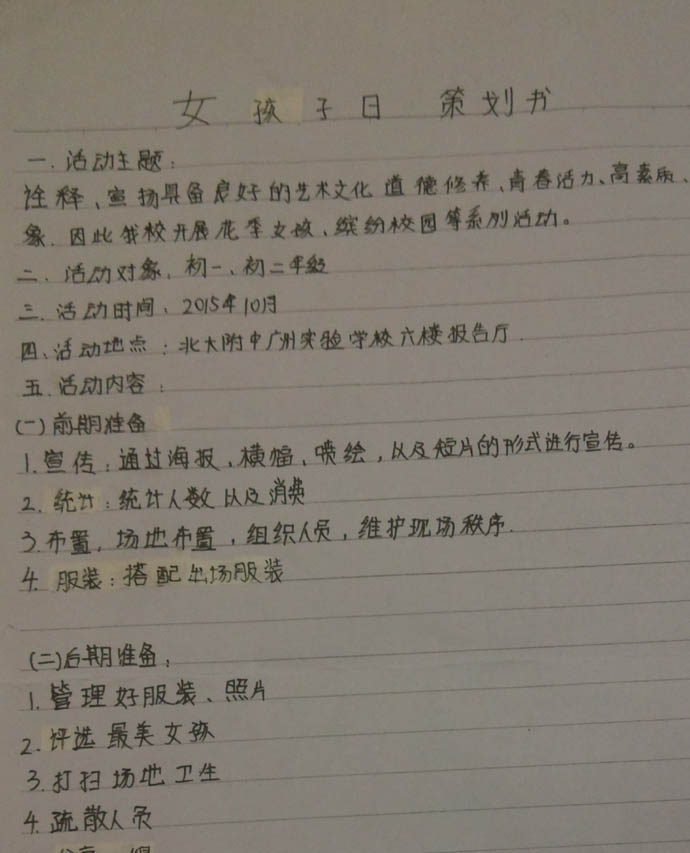 女孩子日 策划书
一.活动主题：
诠释、宣扬具备良好的艺术文化道德修养、青春活力、高素质、
象.因此我校开展花季女孩、缤纷校园等系列活动。
二、活动对象：初一、初二年级
三.活动时间：2015年10月
四、活动地点：北大附中广州实验学校六楼报告厅.
五.活动内容：
(一)前期准备
1.宣传：通过海报、横幅、喷绘，以及短片的形式进行宣传。
2.统计：统计人数以及消费
3.布置，场地布置，组织人员，维护现场秩序.
4.服装：搭配出场服装
(二)后期准备：
1.管理好服装、照片
2.评选最美女孩
3.打扫场地卫生
4.疏散人员